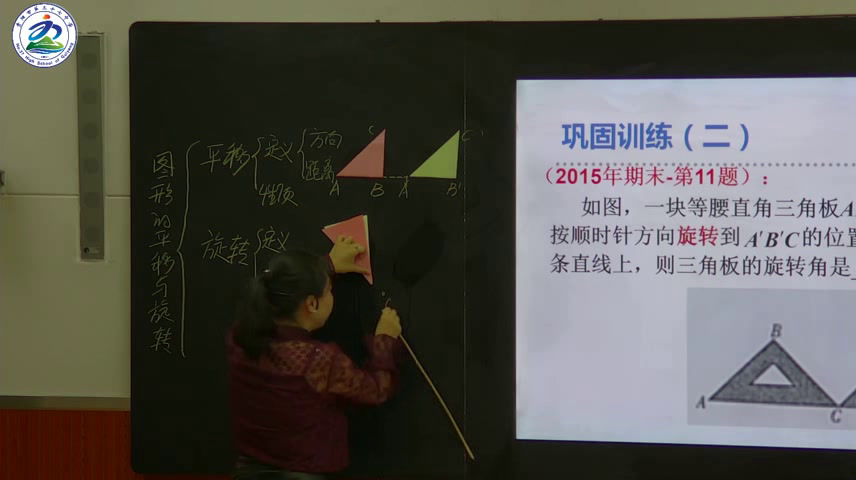 巩固训练（二）
（2015年期末-第11题）：
如图，一块等腰直角三角板A
按顺时针方向旋转到A'B'C的位置
条直线上，则三角板的旋转角是
B
A
C
图形的平移与旋转
平移
定义
方向
距离
性质
C
A
B
A'
B'
C'
旋转
定义